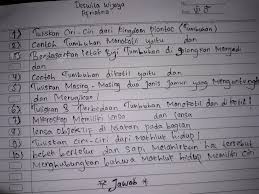 Deswita Wijaya
1) Tuliskan Ciri-Ciri dari Kingdom Plantae (Tumbuhan)
2) Contoh Tumbuhan Monokotil yaitu dan
3) Berdasarkan letak Biji Tumbuhan di golongkan Menjadi
dan
4) Contoh Tumbuhan dikotil yaitu dan
5) Tuliskan Masing-Masing dua Jenis Jamur yang Menguntungkan
dan Merugikan!
6) Tuliskan 8 Perbedaan Tumbuhan Monokotil dan dikotil!
7) Mikroskop Memiliki lensa dan lensa
8) lensa Objektif di letakan pada bagian
9) Tuliskan ciri-ciri dari Makhluk hidup!
10) bebek bertelur dan Sapi Melahirkan hal tersebut
Menghubungkan bahwa Makhluk hidup Memiliki Ciri
* Jawab *